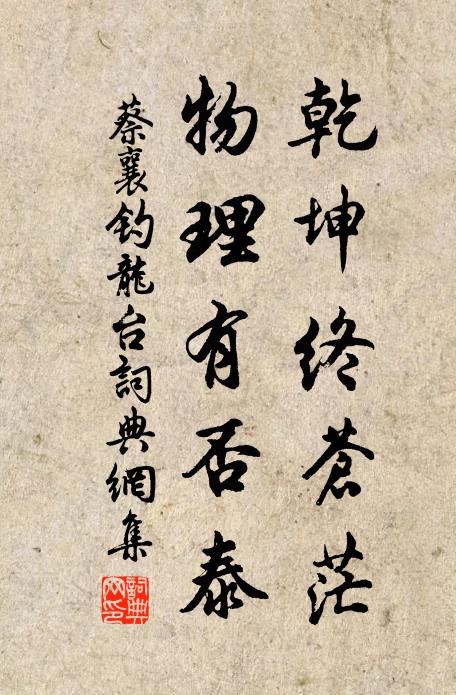 乾坤終蒼茫
物理有否泰
蔡襄釣龍台詞典網集
詞典
网印